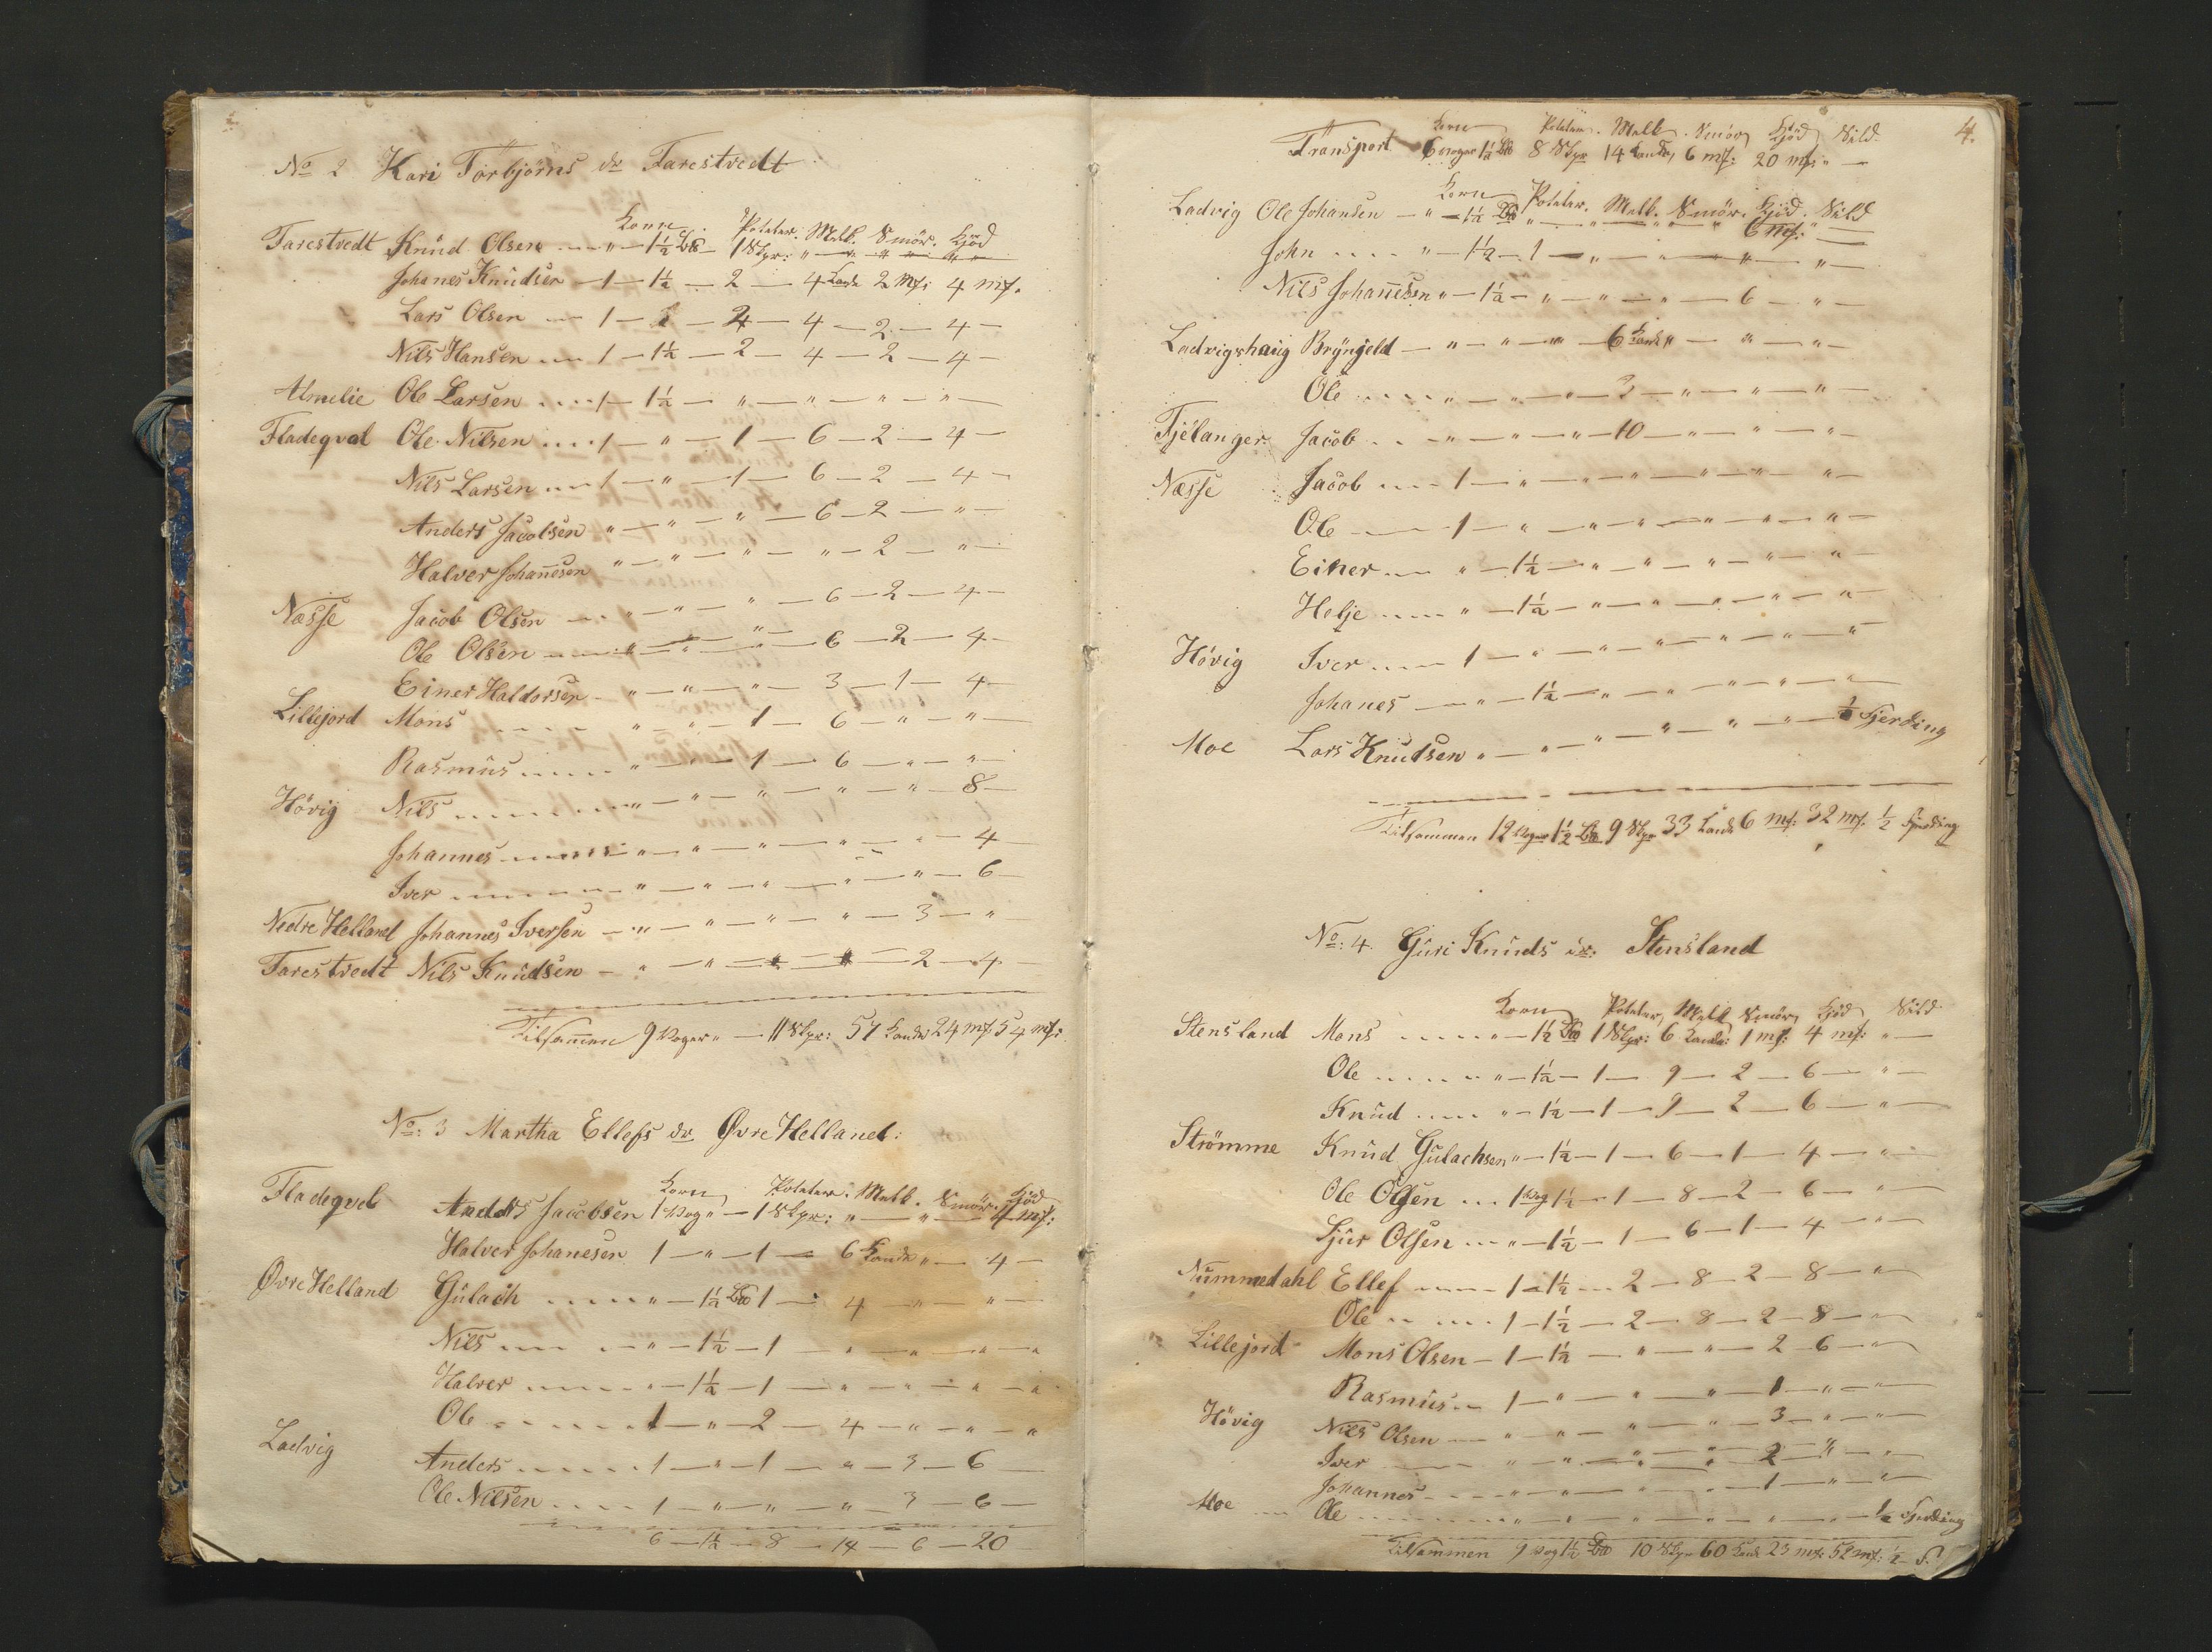 No 2 Kari Torbjörns dr Tarestvedt
Korn. Poteter. Melk. Smör. Kjöd
Tarestvedt Knud Olsen — " — 1½ — 1 Skpr: " — " — " — "
Johanes Knudsen — 1 — 1½ — 2 — 4 Kande 2 mk: 4 mk.
Lars Olsen — 1 — — 4 — 2 — 4 —
Nils Hansen — 1 — 1½ — 2 — 4 — 2 — 4 —
Almelie Ole Larsen — 1 — 1½ — " — " — " — " —
Fladeqval Ole Nilsen — 1 — " — 1 — 6 — 2 — 4 —
Nils Larsen — 1 — " — 1 — 6 — 2 — 4 —
Anders Jacobsen " — " — " — 6 — 2 — " —
Halver Johanesen " — " — " — " — 2 — " —
Næsse Jacob Olsen — " — " — " — 6 — 2 — 4 —
Ole Olsen — " — " — " — 6 — 2 — 4 —
Einer Haldorsen — " — " — " — 3 — 1 — 4 —
Lillejord Mons — " — " — 1 — 6 — " — " —
Rasmus — " — " — 1 — 6 — " — " —
Hövig Nils — " — " — " — " — " — 8 —
Johannes — " — " — " — " — " — 4 —
Iver — " — " — " — " — " — 6 —
Nedre Helland Johannes Iversen — " — " — " — " — 3 — " —
Tarestvedt Nils Knudsen — " — " — " — " — 2 — 4 —
Tilsamen 9 Voger " — 11 Skpr: 57 Kande 24 mk. 54 mk:
No: 3 Martha Ellefs dr Øvre Helland:
Korn Poteter. Melk. Smör. Kjöd
Fladeqvel Anders Jacobsen 1 Vog " — 1 Skpr: " — " — 4 mk:
Halver Johanesen 1 — " — 1 — 6 Kande " — 4 —
Øvre Helland Gulach — " — 1½ 1 — 4 — " — " —
Nils — " — 1½ — 1 — " — " — "
Halver — " — 1½ — 1 — " — " — "
Ole — 1 — " — 2 — 4 — " — " — "
Ladvig Anders — 1 — " — 1 — " — 3 — 6 —
Ole Nilsen — 1 — " — " — " — 3 — 6 —
6 — 1½ — 8 — 14 — 6 — 20
4.
Korn Poteter. Melk. Smör Kjöd Sild
Transport 6 voger 1½ 8 Skpr 14 Kande, 6 mk: 20 mk: " —
Korn Poteter. Melk. Smör. Kjöd. Sild
Ladvig Ole Johansen — " — 1½ " — " — " — 6 mk: " —
John — " — 1½ — 1 — " — " — " — " —
Nils Johannesen " — 1½ — " — " — " — 6 — " —
Ladvigshaug Brynjeld — " — " — " — 6 Kande " — " — " —
Ole — " — " — " — 3 — " — " — " —
Fjelanger Jacob — " — " — " — 10 — " — " — " —
Næsse Jacob — 1 — " — " — " — " — " — " —
Ole — 1 — " — " — " — " — " — " —
Einer — " — 1½ — " — " — " — " — " —
Helje — " — 1½ — " — " — " — " — " —
Hövig Iver — 1 — " — " — " — " — " — " —
Johanes — " — 1½ — " — " — " — " — " —
Moe Lars Knudsen " — " — " — " — " — " — ½ Fjerding
Tilsammen 12 Voger 1½ 9 Skpr 33 Kande 6 mk: 32 mk. ½ Fjerding
No: 4. Guri Knuds dr: Stensland
Korn Poteter, Melk Smör, Kjöd Sild
Stensland Mons — " — 1½ 1 Skpr: 6 Kande: 1 mk: 4 mk: " —
Ole — " — 1½ — 1 — 9 — 2 — 6 — " —
Knud — " — 1½ — 1 — 9 — 2 — 6 — " —
Strömme Knud Gulachsen " — 1½ — 1 — 6 — 1 — 4 — " —
Ole Olsen — 1 Vog 1½ — 1 — 8 — 2 — 6 — " —
Sjur Olsen — " — 1½ — 1 — 6 — 1 — 4 — " —
Nummedahl Ellef — 1 — 1½ — 2 — 8 — 2 — 8 — " —
Ole — 1 — 1½ — 2 — 8 — 2 — 8 — " —
Lillejord Mons Olsen — 1 — 1½ — " — " — 2 — 6 — " —
Rasmus — 1 — " — " — " — 1 — " — " —
Hövig Nils Olsen — " — " — " — " — 3 — " — " —
Iver — " — " — " — " — 2 — " — " —
Johannes — " — " — " — " — 1 — " — " —
Moe Ole — " — " — " — " — " — " — ½ Fjerding
Tilsammen 9 Vog 1½ 10 Skpr 60 Kande 23 mk: 52 mk: ½ F.